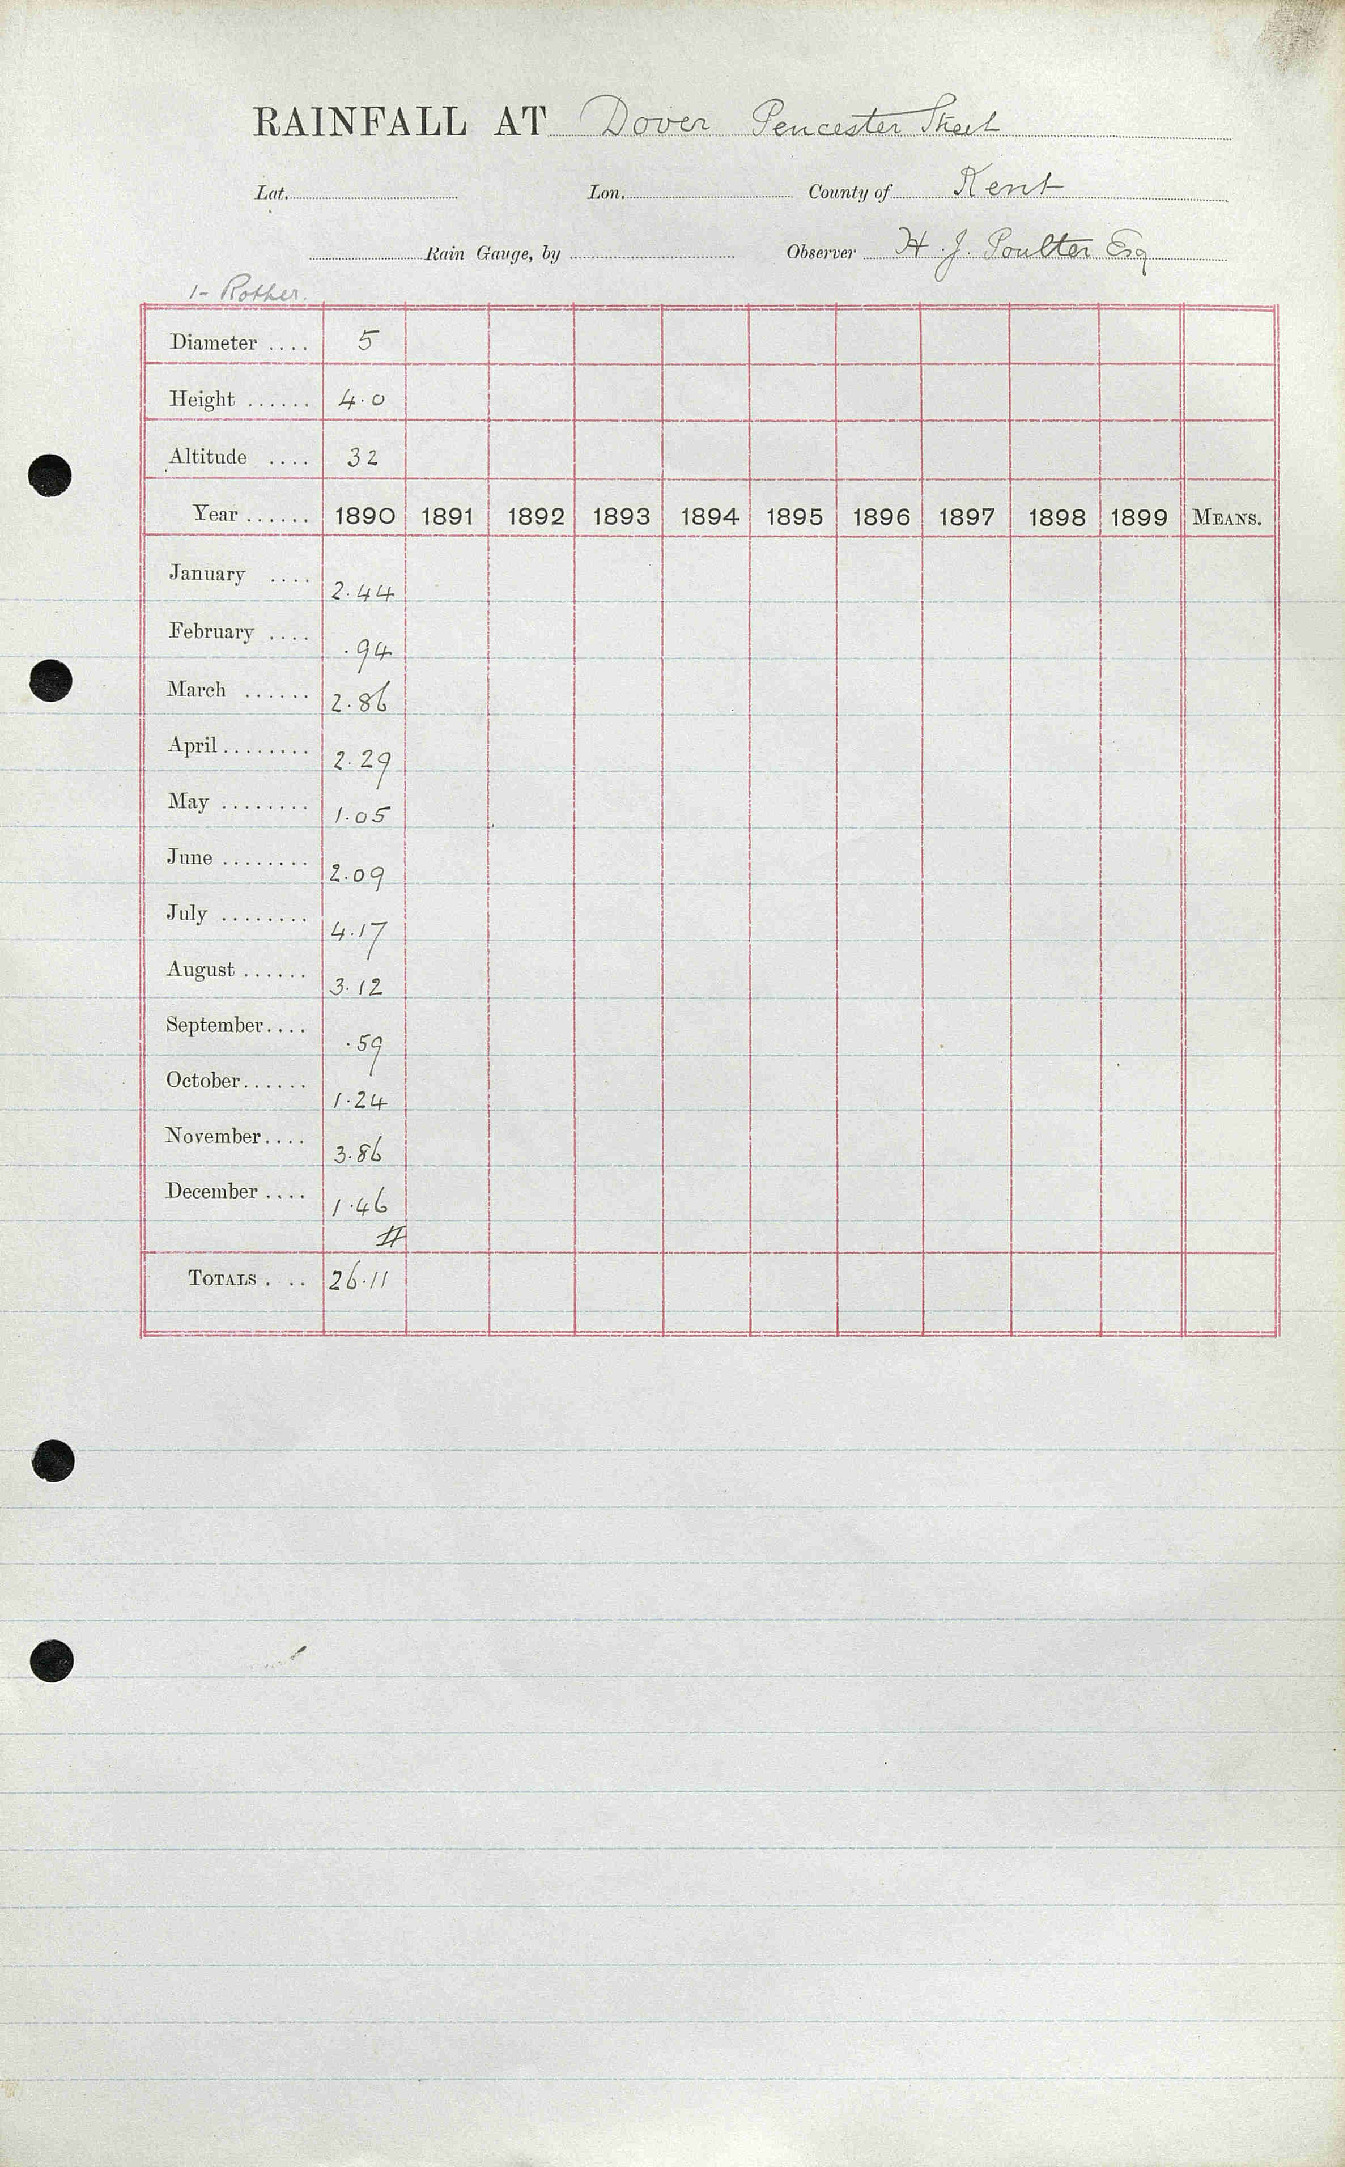 RAINFALL AT Dover Pencester Street
Lat. Lon. County of Kent
Rain Gauge, by Observer H. J. Poulter Esq
1- Rother.
Diameter .... 5
Height ...... 4.0
Altitude .... 32
Year ...... 1890 1891 1892 1893 1894 1895 1896 1897 1898 1899 MEANS.
January .... 2.44
February .... .94
March ...... 2.86
April ........ 2.29
May ........ 1.05
June ........ 2.09
July ........ 4.17
August ...... 3.12
September.... .59
October...... 1.24
November.... 3.86
December .... 1.46
TOTALS . .. 26.11